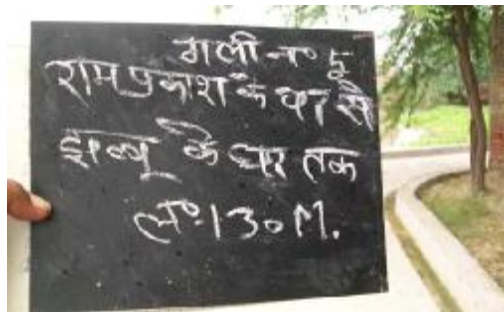 गली न० 5
रामप्रकाश के घर से
झब्बू के घर तक
ल० 130 M.